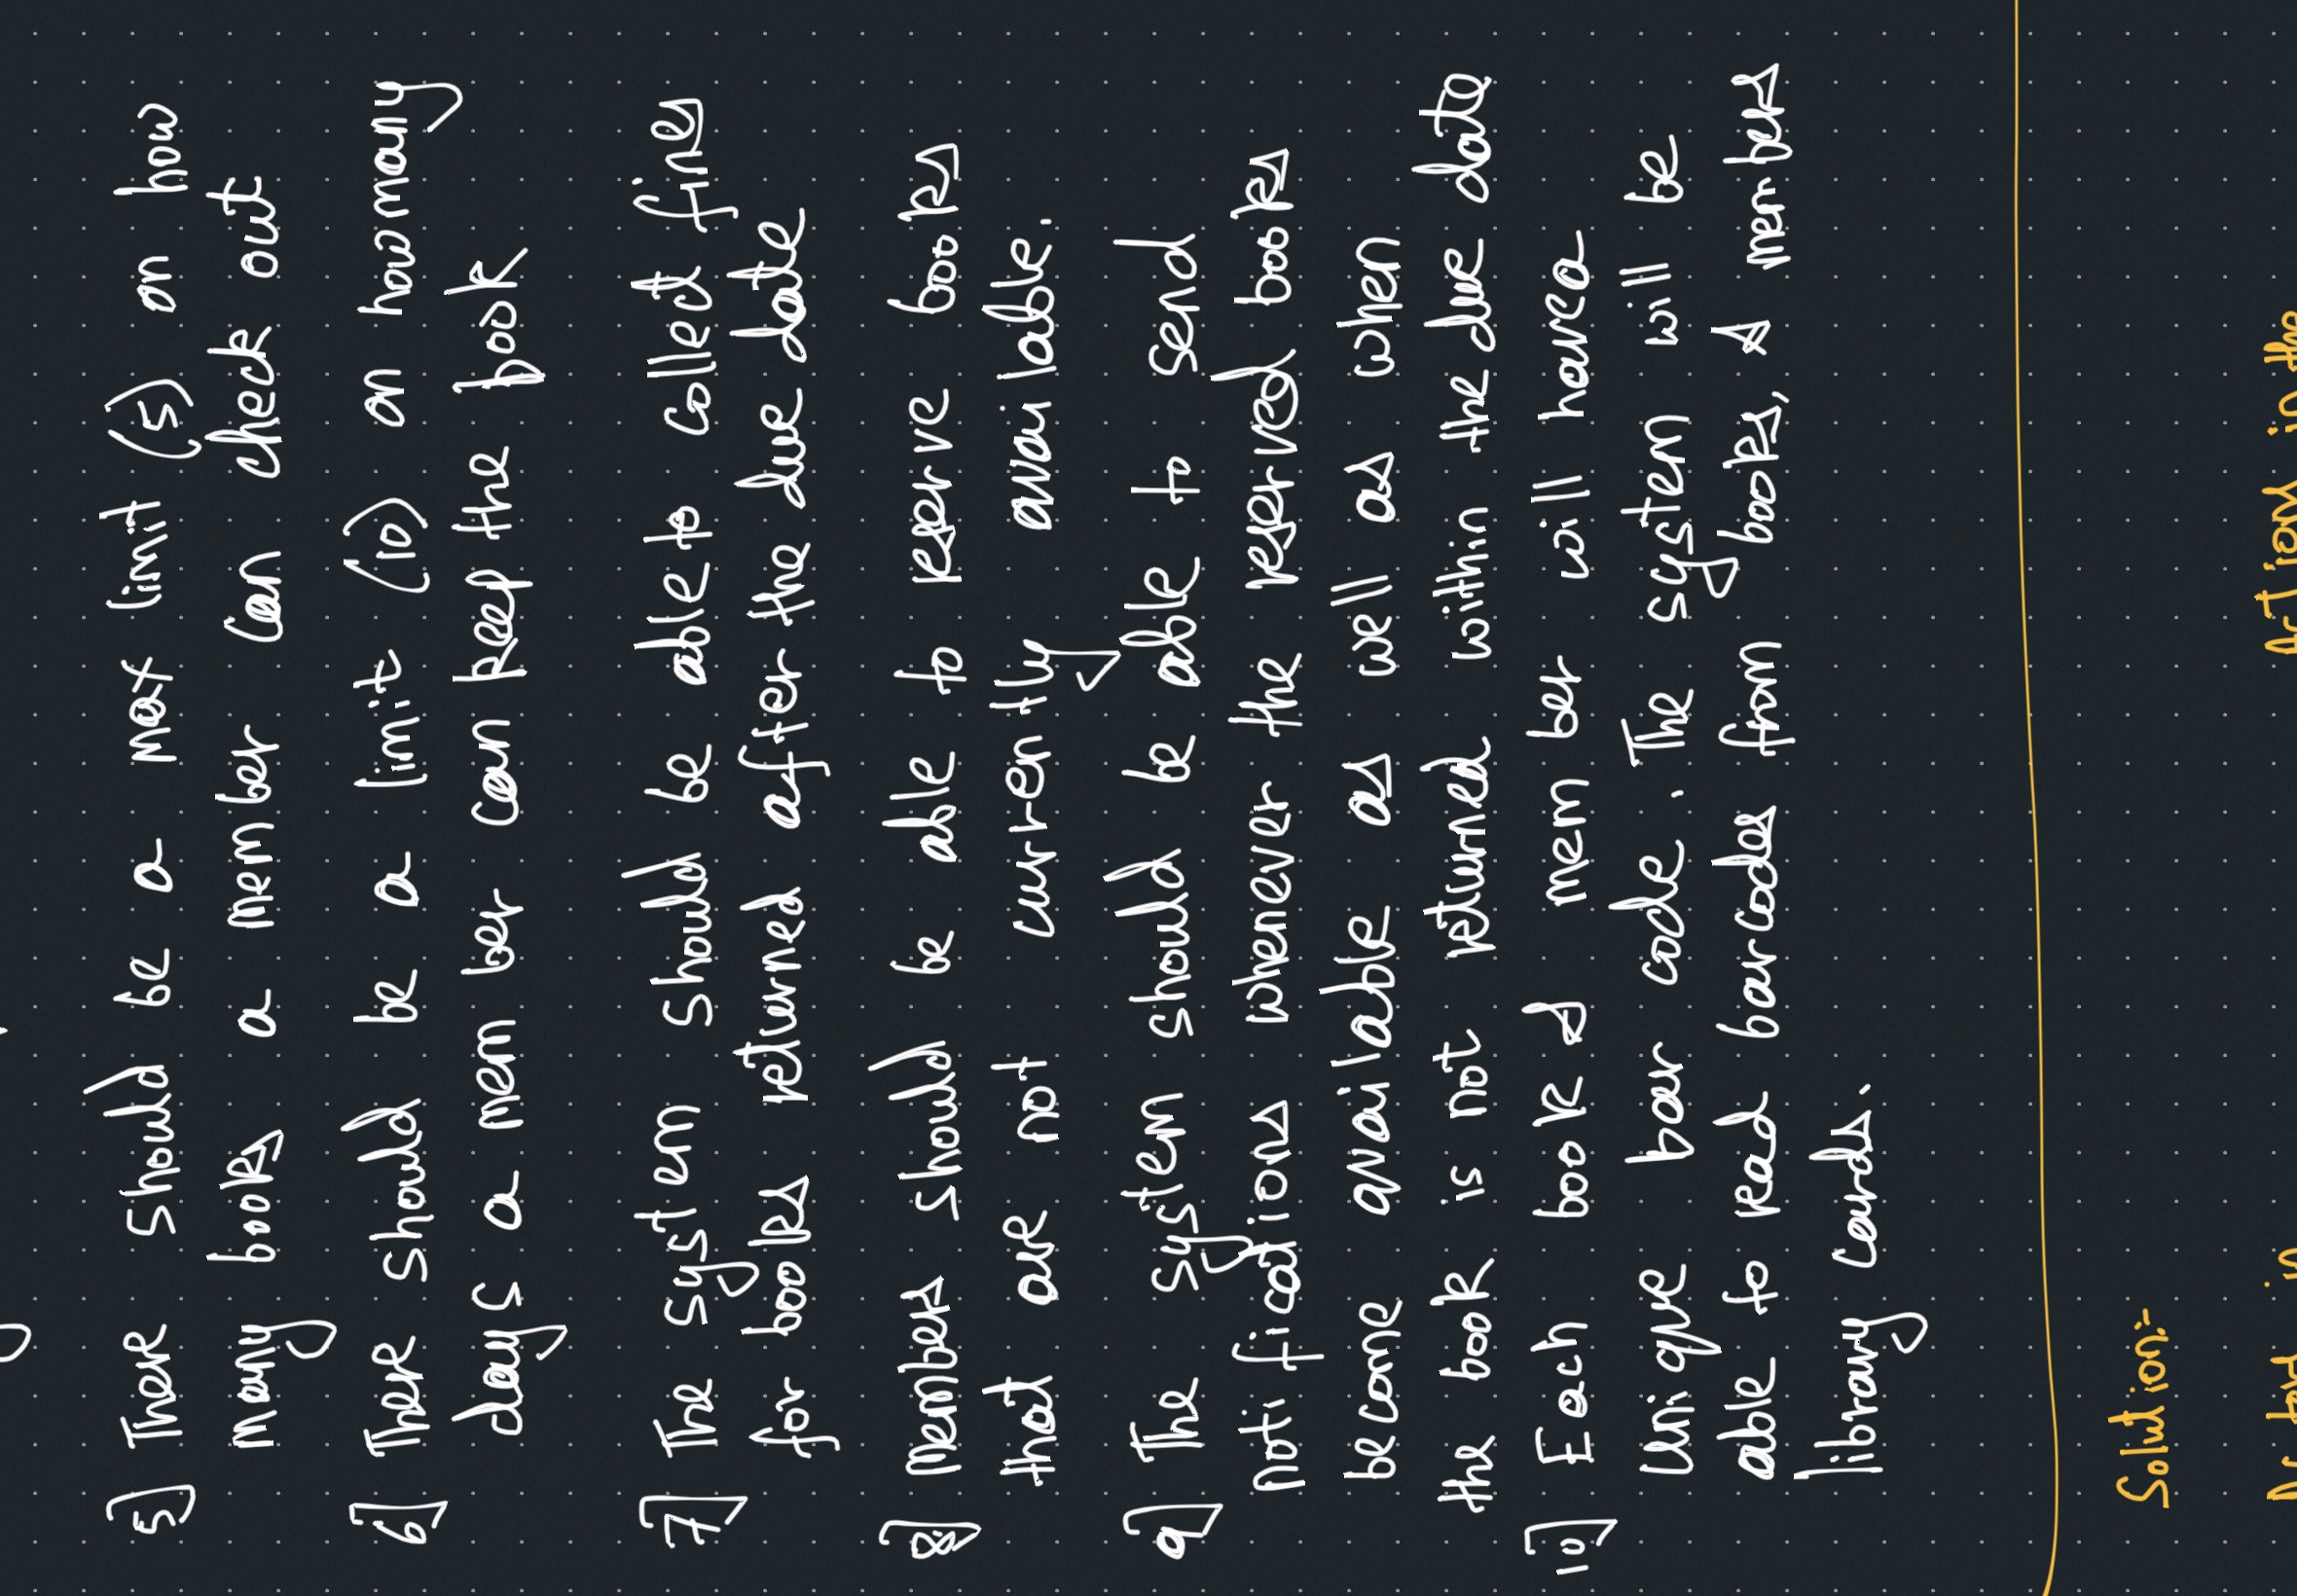 5] There should be a max limit (5) on how
many books a member can check out
6] There should be a limit (10) on how many
days a member can keep the book
7] The system should be able to collect fines
for books returned after the due date
8] Members should be able to reserve books
that are not currently available.
9] The system should be able to send
notifications whenever the reserved books
become available as well as when
the book is not returned within the due date
10] Each book & member will have a
unique bar code. The system will be
able to read barcodes from books, & members
library cards.
Solution:-
Actors in Actions in the